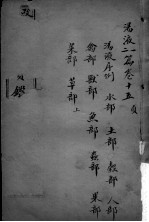 湯液一篇卷十五
湯液序例 水部 土部 穀部 人部
禽部 獸部 魚部 蟲部 果部
菜部 草部上
鑑